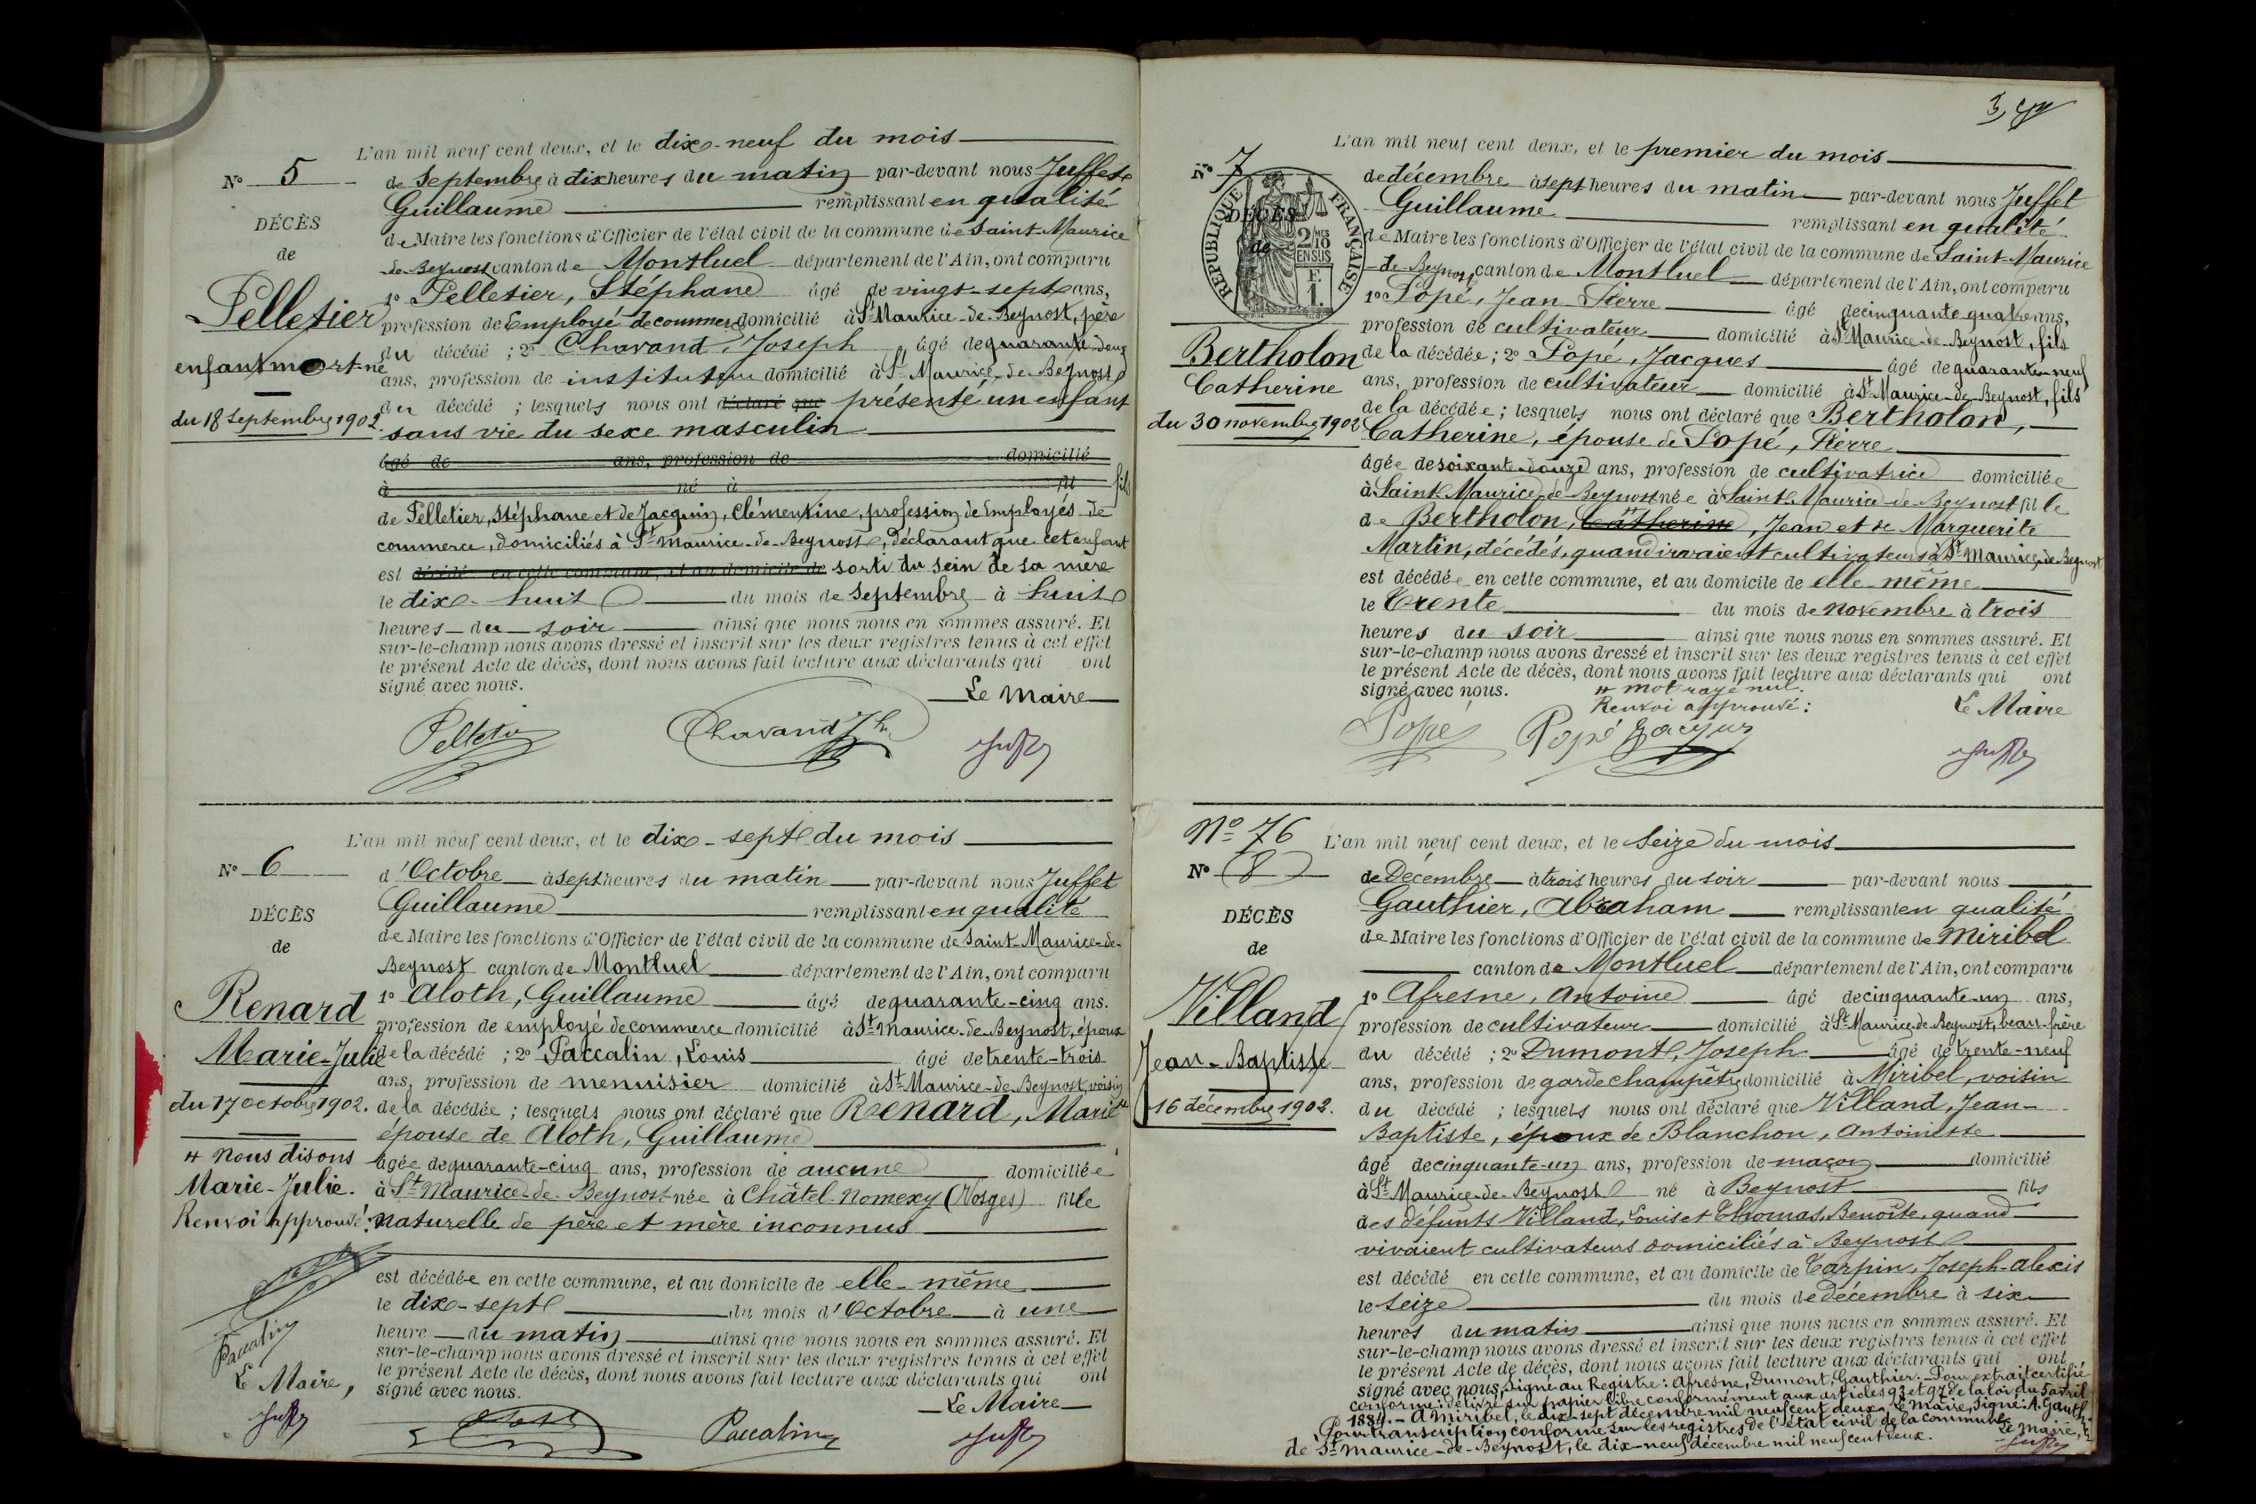 L'an mil neuf cent deux, et le dix-neuf du mois
N° 5
de Septembre à dix heures du matin par-devant nous Juffet
Guillaume remplissant en qualité
DÉCÈS
de Maire les fonctions d'Officier de l'état civil de la commune de Saint-Maurice
de
de Beynost canton de Montluel département de l'Ain, ont comparu
1° Pelletier, Stéphane âgé de vingt-sept ans,
Pelletier
profession de Employé de commerce domicilié à St Maurice-de-Beynost, père
du décédé ; 2° Chavand, Joseph âgé de quarante-deux
enfant mort-né
ans, profession de instituteur domicilié à St Maurice-de-Beynost
du 18 Septembre 1902.
du décédé ; lesquels nous ont déclaré que présenté un enfant
sans vie du sexe masculin
âgé de ans, profession de domicilié
à né à fil fils
de Pelletier, Stéphane et de Jacquin, Clémentine, profession de Employés de
commerce, domiciliés à St Maurice-de-Beynost, déclarant que cet enfant
est décédé en cette commune, et au domicile de sorti du sein de sa mère
le dix-huit du mois de Septembre à huit
heures du soir ainsi que nous nous en sommes assuré. Et
sur-le-champ nous avons dressé et inscrit sur les deux registres tenus à cet effet
le présent Acte de décès, dont nous avons fait lecture aux déclarants qui ont
signé avec nous.
Le Maire
Pelletier
Chavand Jh
Juffet
L'an mil neuf cent deux, et le dix-sept du mois
N° 6
d'Octobre à sept heures du matin par-devant nous Juffet
Guillaume remplissant en qualité
DÉCÈS
de Maire les fonctions d'Officier de l'état civil de la commune de Saint-Maurice-de-
de
Beynost canton de Montluel département de l'Ain, ont comparu
1° Aloth, Guillaume âgé de quarante-cinq ans.
Renard
profession de employé de commerce domicilié à St Maurice-de-Beynost, époux
Marie-Julie
de la décédé ; 2° Paccalin, Louis âgé de trente-trois
ans, profession de menuisier domicilié à St-Maurice-de-Beynost, voisin
du 17 octobre 1902.
de la décédée ; lesquels nous ont déclaré que Renard, Marie
épouse de Aloth, Guillaume
# Nous disons
âgée de quarante-cinq ans, profession de aucune domiciliée
Marie-Julie.
à St Maurice-de-Beynost née à Châtel-Nomexy (Vosges) fille
Renvoi approuvé :
naturelle de père et mère inconnus
est décédée en cette commune, et au domicile de elle-même
le dix-sept du mois d'Octobre à une
heure du matin ainsi que nous nous en sommes assuré. Et
Paccalin
sur-le-champ nous avons dressé et inscrit sur les deux registres tenus à cet effet
le présent Acte de décès, dont nous avons fait lecture aux déclarants qui ont
Le Maire,
signé avec nous.
Juffet
Le Maire
Paccalin
Juffet
L'an mil neuf cent deux, et le premier du mois
N° 7
de décembre à sept heures du matin par-devant nous Juffet
RÉPUBLIQUE FRANÇAISE
2 MES 10 EN SUS
F. 1.
DÉCÈS
de
Guillaume remplissant en qualité
de Maire les fonctions d'Officier de l'état civil de la commune de Saint-Maurice
de Beynost canton de Montluel département de l'Ain, ont comparu
1° Popé, Jean Pierre âgé de cinquante-quatre ans,
profession de cultivateur domicilié à St Maurice-de-Beynost, fils
Bertholon
de la décédée ; 2° Popé, Jacques âgé de quarante-neuf
Catherine
ans, profession de cultivateur domicilié à St Maurice-de-Beynost, fils
de la décédée ; lesquels nous ont déclaré que Bertholon,
du 30 novembre 1902
Catherine, épouse de Popé, Pierre
âgée de soixante-douze ans, profession de cultivatrice domiciliée
à Saint-Maurice-de-Beynost née à Saint-Maurice-de-Beynost fille
de Bertholon, Catherine #, Jean et de Marguerite
Martin, décédés, quand vivaient cultivateurs à St Maurice-de-Beynost
est décédée en cette commune, et au domicile de elle-même
le Trente du mois de novembre à trois
heures du soir ainsi que nous nous en sommes assuré. Et
sur-le-champ nous avons dressé et inscrit sur les deux registres tenus à cet effet
le présent Acte de décès, dont nous avons fait lecture aux déclarants qui ont
signé avec nous. # mot rayé nul.
Renvoi approuvé :
Le Maire
Popé
Popé Jacques
Juffet
N° 76
L'an mil neuf cent deux, et le Seize du mois
N° 8
de Décembre à trois heures du soir par-devant nous
Gauthier, Abraham remplissant en qualité
DÉCÈS
de Maire les fonctions d'Officier de l'état civil de la commune de Miribel
de
canton de Montluel département de l'Ain, ont comparu
1° Afresne, Antoine âgé de cinquante-un ans,
Villand
profession de cultivateur domicilié à St Maurice-de-Beynost, beau-frère
Jean-Baptiste
du décédé ; 2° Dumont, Joseph âgé de trente-neuf
ans, profession de garde champêtre domicilié à Miribel, voisin
16 décembre 1902.
du décédé ; lesquels nous ont déclaré que Villand, Jean-
Baptiste, époux de Blanchon, Antoinette
âgé de cinquante-un ans, profession de maçon domicilié
à St Maurice-de-Beynost né à Beynost fils
des défunts Villand, Louis et Thomas, Benoîte, quand
vivaient cultivateurs domiciliés à Beynost
est décédé en cette commune, et au domicile de Tarpin, Joseph-Alexis
le seize du mois de décembre à six
heures du matin ainsi que nous nous en sommes assuré. Et
sur-le-champ nous avons dressé et inscrit sur les deux registres tenus à cet effet
le présent Acte de décès, dont nous avons fait lecture aux déclarants qui ont
signé avec nous, Signé au Registre : Afresne, Dumont, Gauthier. Pour extrait certifié
conforme : délivré sur papier libre conformément aux articles 93 et 97 de la loi du 5 avril
1884. - A Miribel, le dix-sept décembre mil neuf cent deux, Le Maire, Signé : A. Gauth.
Pour transcription conforme sur les registres de l'état civil de la commune
de St Maurice-de-Beynost, le dix-neuf décembre mil neuf cent deux.
Le Maire,
Juffet